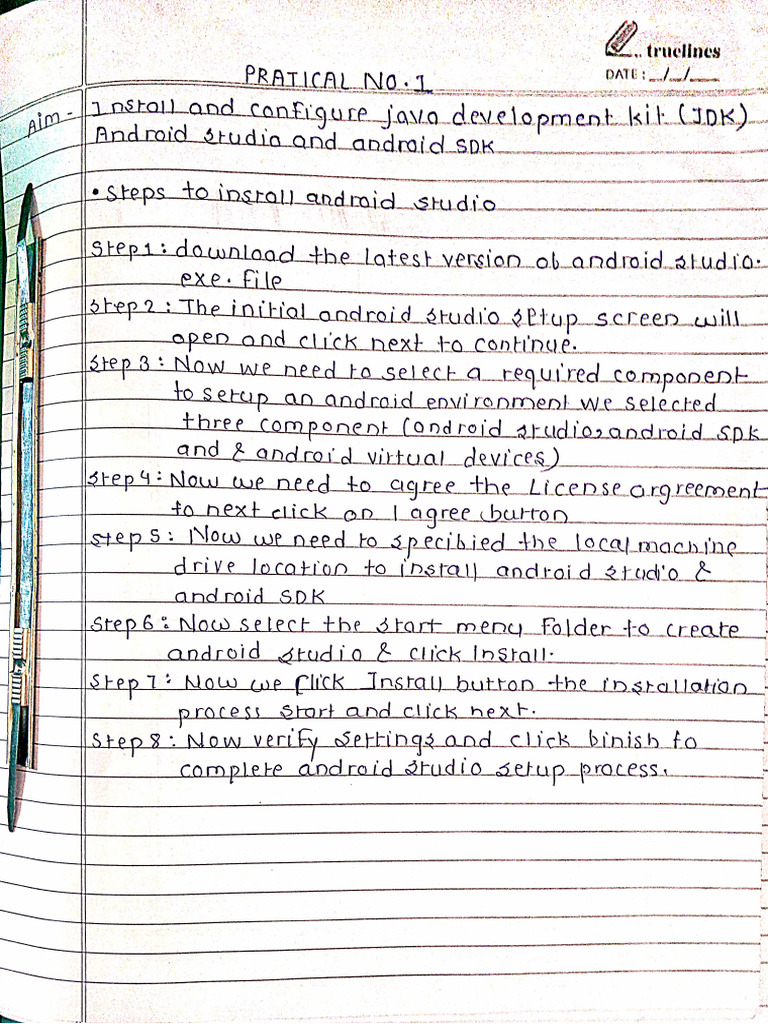 truelines
DATE: __/__/____
PRATICAL NO. 1
Aim - Install and configure java development kit (JDK)
Android studio and android SDK
• steps to install android studio
Step 1: download the latest version of android studio.
exe. file
Step 2: The initial android studio setup screen will
open and click next to continue.
Step 3: Now we need to select a required component
to setup an android environment we selected
three component (android studio, android SDK
and & android virtual devices)
Step 4: Now we need to agree the License argreement
to next click on I agree button
Step 5: Now we need to specified the local machine
drive location to install android studio &
android SDK
Step 6: Now select the start menu Folder to create
android studio & click Install.
Step 7: Now we click Install button the installation
process start and click next.
Step 8: Now verify settings and click finish to
complete android studio setup process.